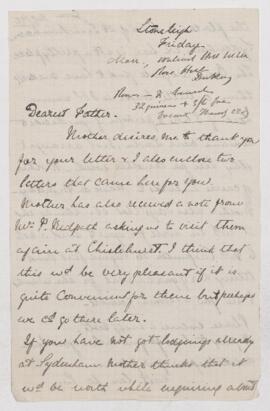 Stoneleigh
Friday.
Dearest Father.
Mother desires me to thank you
for your letter & I also enclose two
letters that came here for you.
Mother has also received a note from
Mrs P. Redpath asking us to visit them
again at Chislehurst. I think that
this wd be very pleasant if it is
quite convenient for them but perhaps
we cd go there later.
If you have not got lodgings already
at Sydenham Mother thinks that it
wd be worth while enquiring about